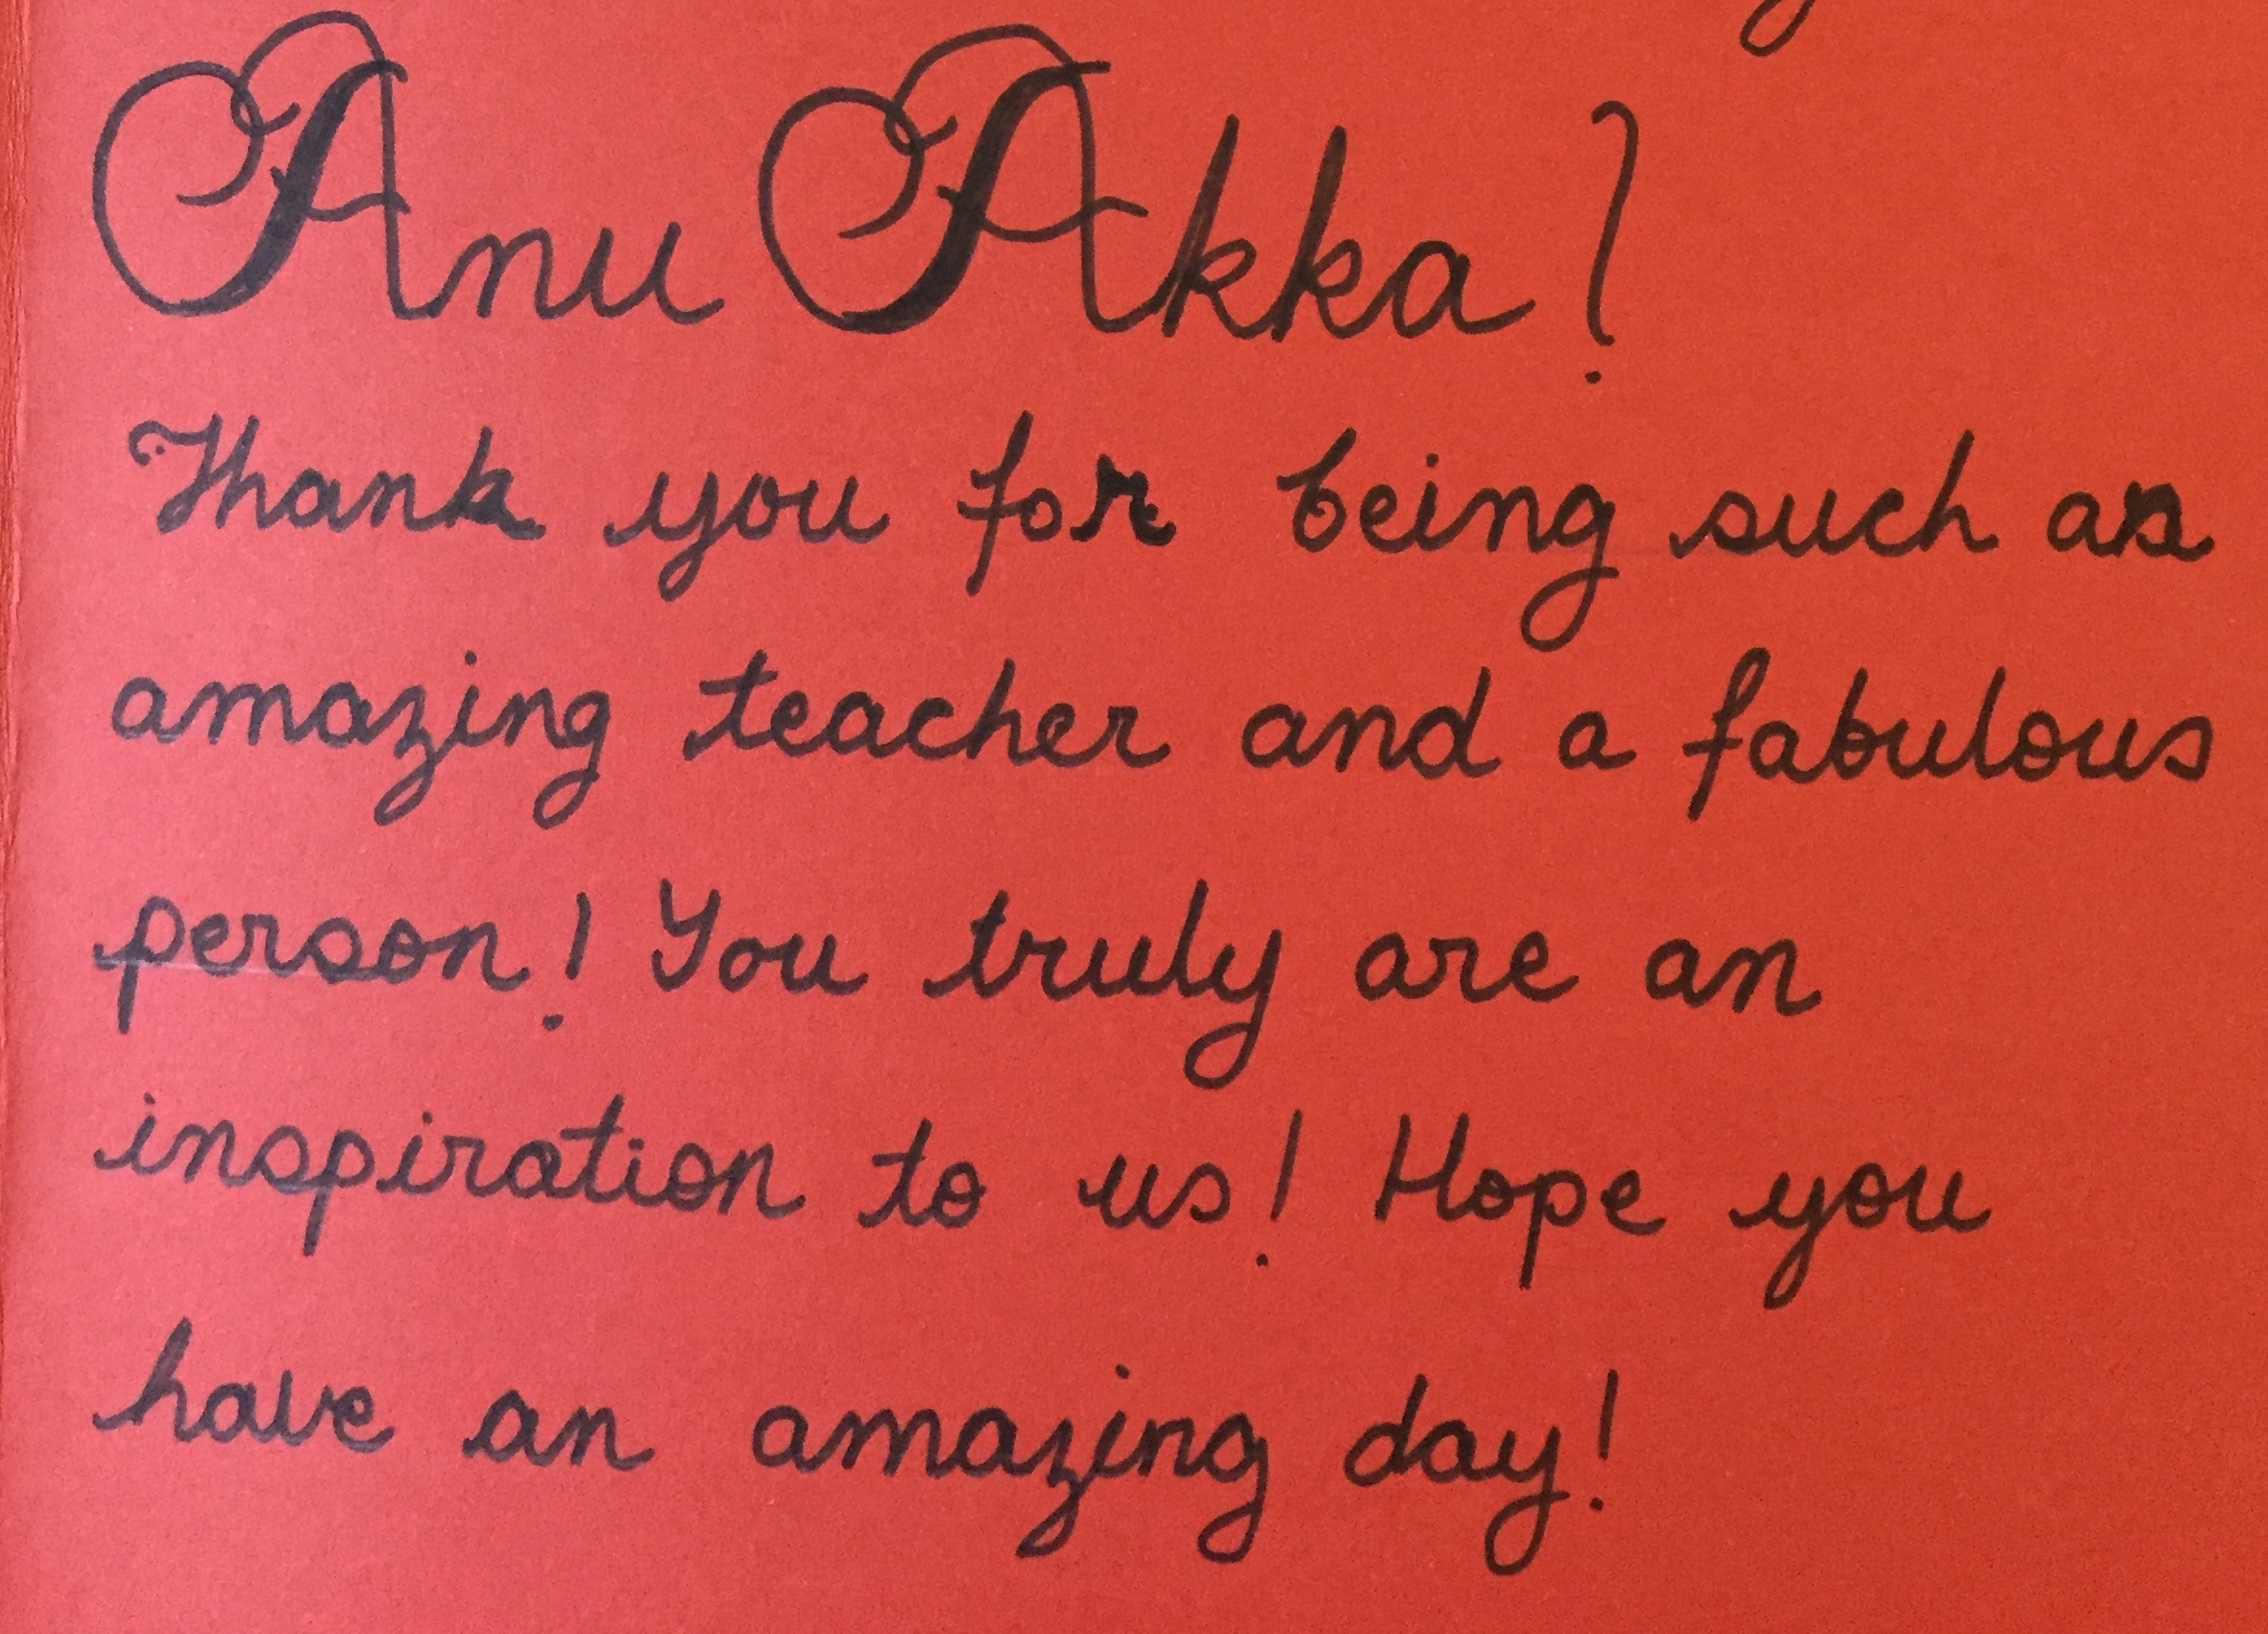 Anu Akka!
Thank you for being such an
amazing teacher and a fabulous
person! You truly are an
inspiration to us! Hope you
have an amazing day!